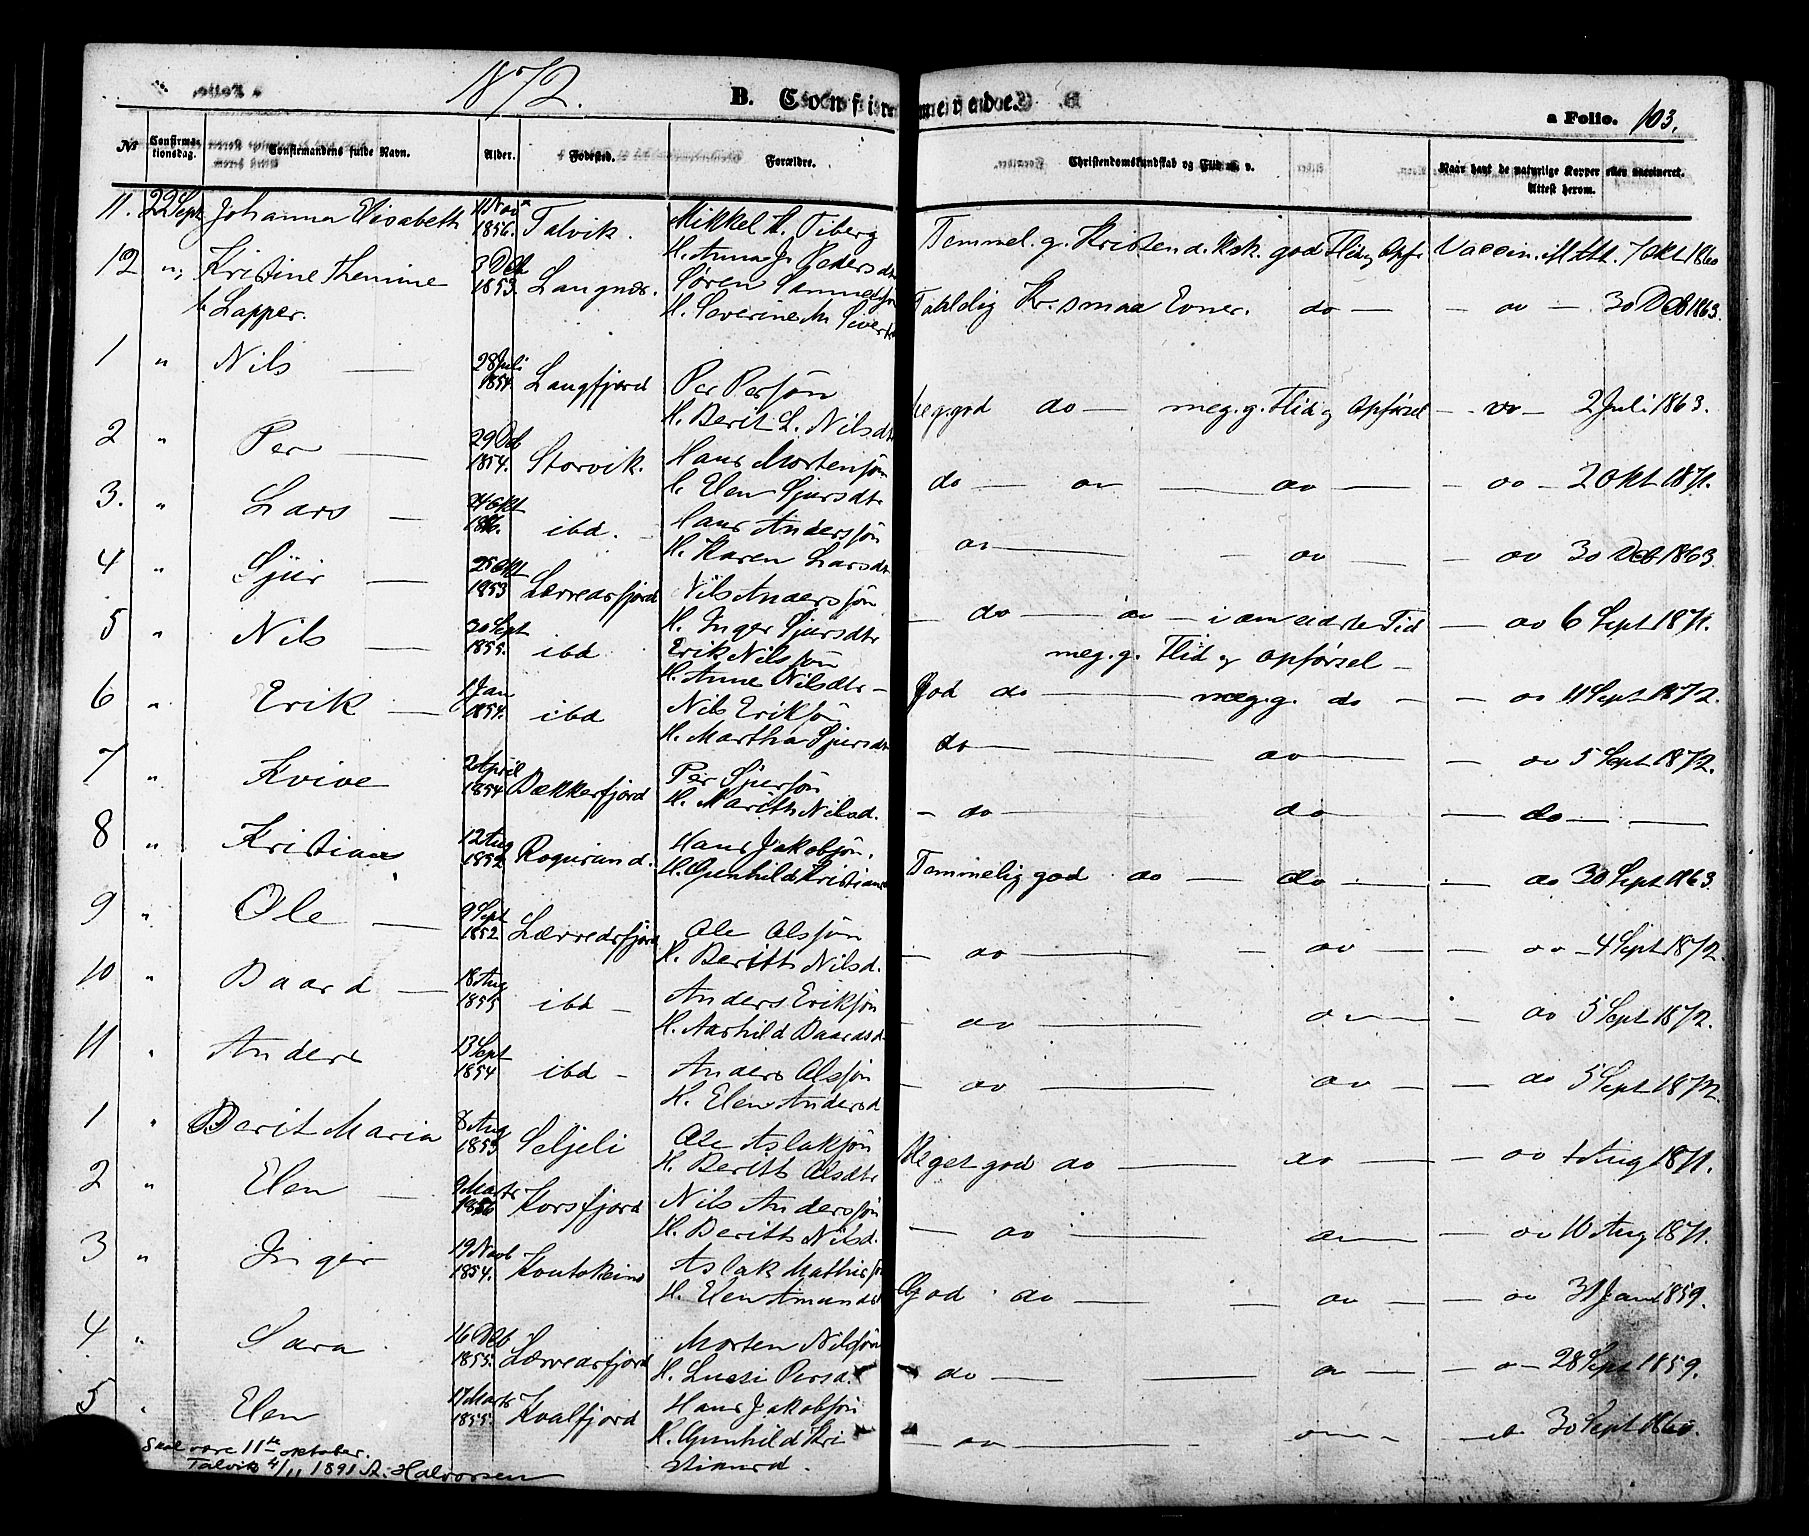 1872.
B. Confirmerede.
a Folio. 103.
No Confirmationsdag. Confirmandens fulde Navn. Alder. Fødested. Forældre. Christendomskundskab og Flid m. v. Naar havt de naturlige Kopper eller vaccineret. Attest herom.
11. 22 Sept Johanna Elisabeth 11 Nov 1856. Talvik. Mikkel A. Viberg
H. Anna J. Pedersdt Temmel. g. Kristend. Ksk. god Flid og Opf. Vaccin. 7 Okt 1860
12 " Kristine Themine 3 Deb 1853. Langnæs. Søren
H. Severine M. Sivert Taalelig Kr. smaa Evner. do — — do — 30 Deb 1863.
b Lapper.
1 " Nils — 28 Juli 1854. Langfjord Per Persøn
H. Berit L. Nilsdt Meg. god do — meg. g. Flid og Opførsel — do — 2 Juli 1863.
2 " Per — 29 1854. Storvik. Hans Mortensøn
H. Elen Sjursdtr do — do — do — — do — 2 Okt 1871.
3. " Lars — 24 Okt ibd. Hans Anderssøn
H. Karen Larsdt do — — do — do 30 Deb 1863.
4 " Sjur — 25 Okt 1853 Lærredsfjord Nils Anderssøn
H. Inger Sjursdtr — do — do — i den sidste Tid — do 6 Sept 1871.
meg. g. Flid og Opførsel —
5 " Nils — 30 Sept 1855. ibd Erik Nilssøn
H. Anne Nilsdtr — God do — meg. g. do — — do 11 Sept 1872.
6 " Erik — 1 Jan 1854. ibd Nils Eriksøn
H. Martha Sjursdt do — — do — do 5 Sept 1872.
7 " Kvive 2 April 1854 Bækkerfjord Per Sjursøn
H. Marith Nilsd. — do — do — do — —
8 " Kristian 12 Aug 1852 Rognsund. Hans Jakobsøn.
H. Gunhild Kristians Temmelig god do — do — — do 30 Sept 1863.
9 " Ole — 9 Sept 1852 Lærredsfjord Ole Olssøn
H. Berith Nilsd. — do — — do — — do — 4 Sept 1872.
10 " Baard — 18 Aug 1855 ibd — Anders Eriksøn
H. Aashild Baardsd — do — do — — do 5 Sept 1872.
11 " Anders 13 Sept 1854 ibd — Anders Olssøn
H. Elen Andersd — do — do — — do 5 Sept 1872.
1 " Berit Maria 8 Aug 1853 Seljeli Ole Aslaksøn
H. Berith Olsdtr Meget god do — do — — do 1 Aug 1871.
2 " Elen — 9 Marts Korsfjord Nils Anderssøn
H. Berith Nilsd. — do — do — — do 10 Aug 1871.
3 " Inger 19 Novb 1854. Koutokeino Aslak Mathisøn
H. Elen Amundsd God do — — do — — do 31 Jan 1859.
4 " Sara 16 Deb 1855. Lærredsfjord Morten Nilsøn
H. Lussi Persd. — do — — do — — do — 28 Sept 1859.
5 " Elen 17 Marts 1855. Kvalfjord Hans Jakobsøn
H. Gunhild Kri
stiansd. — do — do — — do 30 Sept 1860.
Skal være 11te oktober.
Talvik 4/11 1891 A. Halvorsen